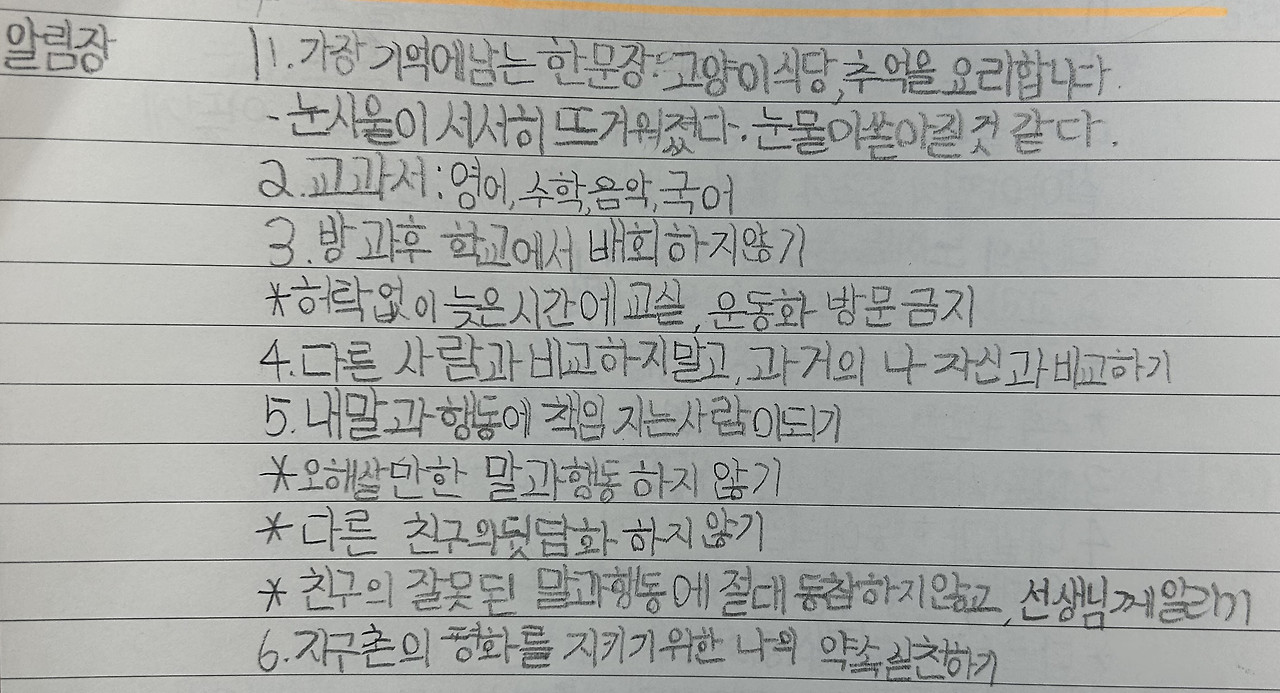 알림장 1. 가장 기억에남는 한문장: 고양이식당, 추억을 요리합니다.
- 눈시울이 서서히 뜨거워졌다. 눈물이쏟아질것 같다.
2. 교과서: 영어, 수학, 음악, 국어
3. 방과후 학교에서 배회하지않기
*허락없이 늦은시간에교실, 운동화 방문금지
4. 다른 사람과 비교하지말고, 과거의 나 자신과비교하기
5. 내말과 행동에 책임 지는사람이되기
*오해살만한 말과행동 하지 않기
* 다른 친구의뒷담화 하지않기
* 친구의 잘못된 말과행동에 절대 동참하지않고, 선생님께알리기
6. 지구촌의 평화를 지키기위한 나의 약속실천하기